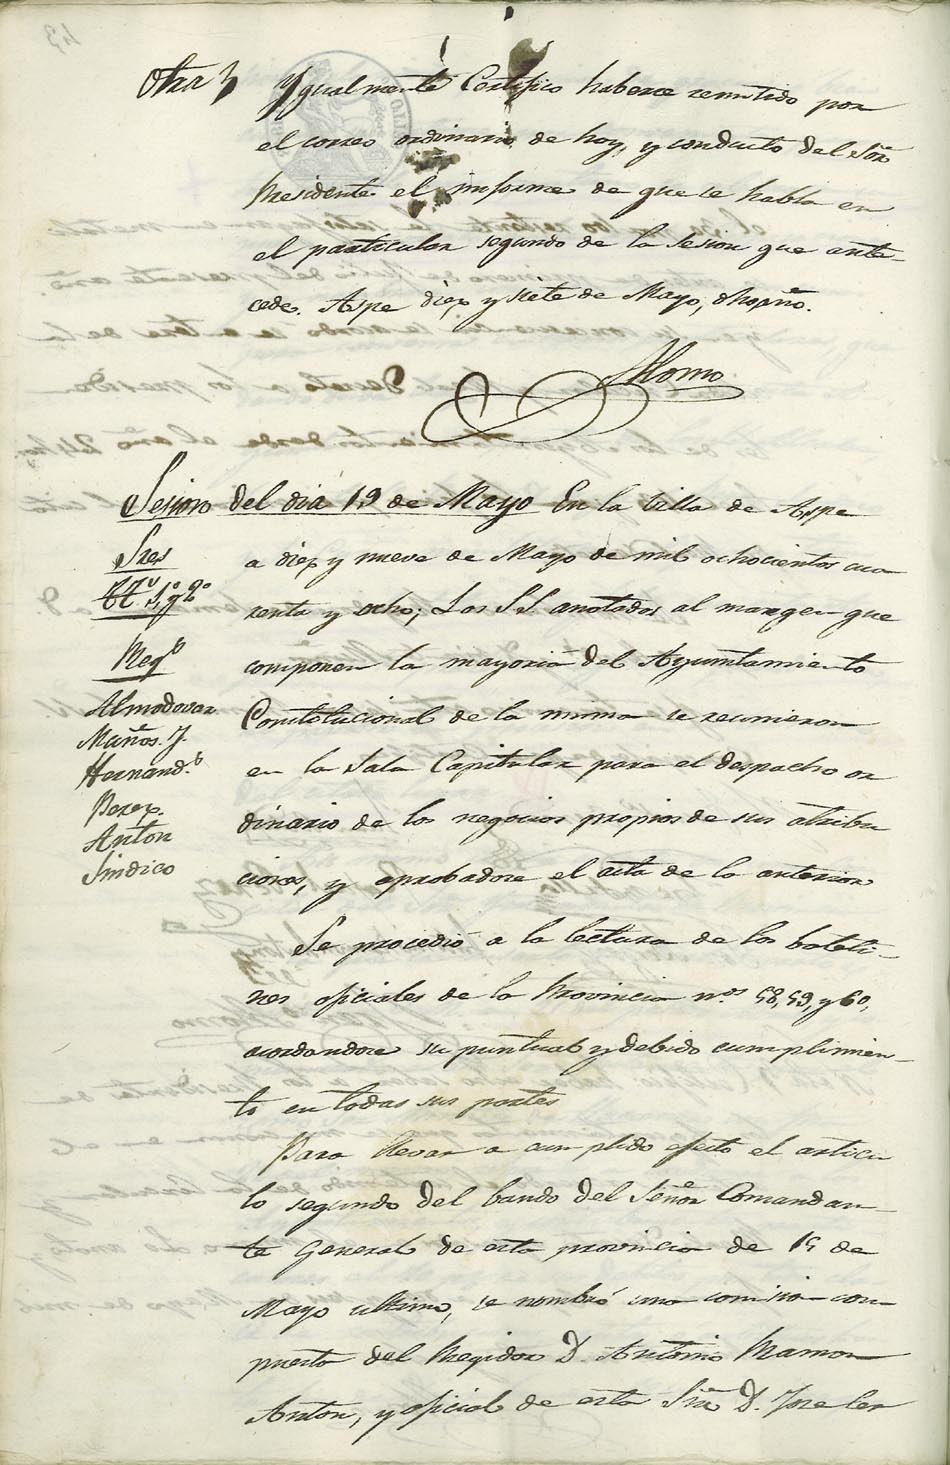 Otra
Ygualmente Certifico haberse remitido por
el correo ordinario de hoy, y conducto del Sor.
Presidente el informe de que se habla en
el particular segundo de la sesion que ante-
cede. Aspe diez y siete de Mayo, dho año.
Alonso
Sesion del dia 19 de Mayo En la Villa de Aspe
Sres
a diez y nueve de Mayo de mil ochocientos cua
TTes 1º y 2º
renta y ocho; Los SS. anotados al margen que
Regs
componen la mayoria del Ayuntamiento
Almodovar
Constitucional de la misma se reunieron
Muños. J.
en la Sala Capitular para el despacho or
Hernands
Perez.
dinario de los negocios propios de sus atribu
Anton
Sindico
ciones, y aprobadose el acta de la anterior
Se procedió a la lectura de los boleti-
nes oficiales de la Provincia nos. 58, 59, y 60,
acordandose su puntual y debido cumplimien-
to en todas sus partes
Para llevar a cumplido efecto el articu
lo segundo del bando del Señor Comandan-
te General de esta provincia de 15 de
Mayo ultimo, se nombró una comision com-
puesta del Regidor D. Antonio Ramon
Anton, y oficial de esta Sria D. Jose Cer